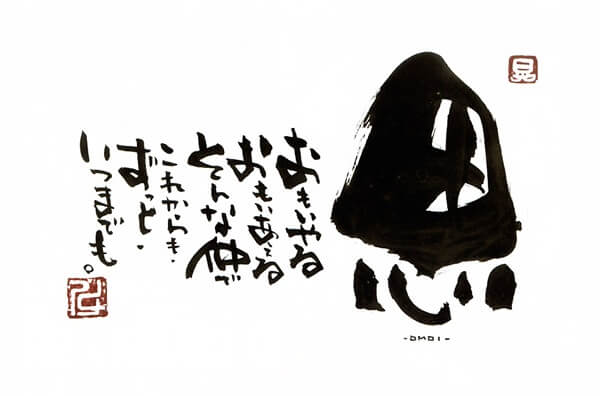 思
-OMOI-
おもいやる
おもいあえる
そんな仲で
これからも・
ずっと・
いつまでも。